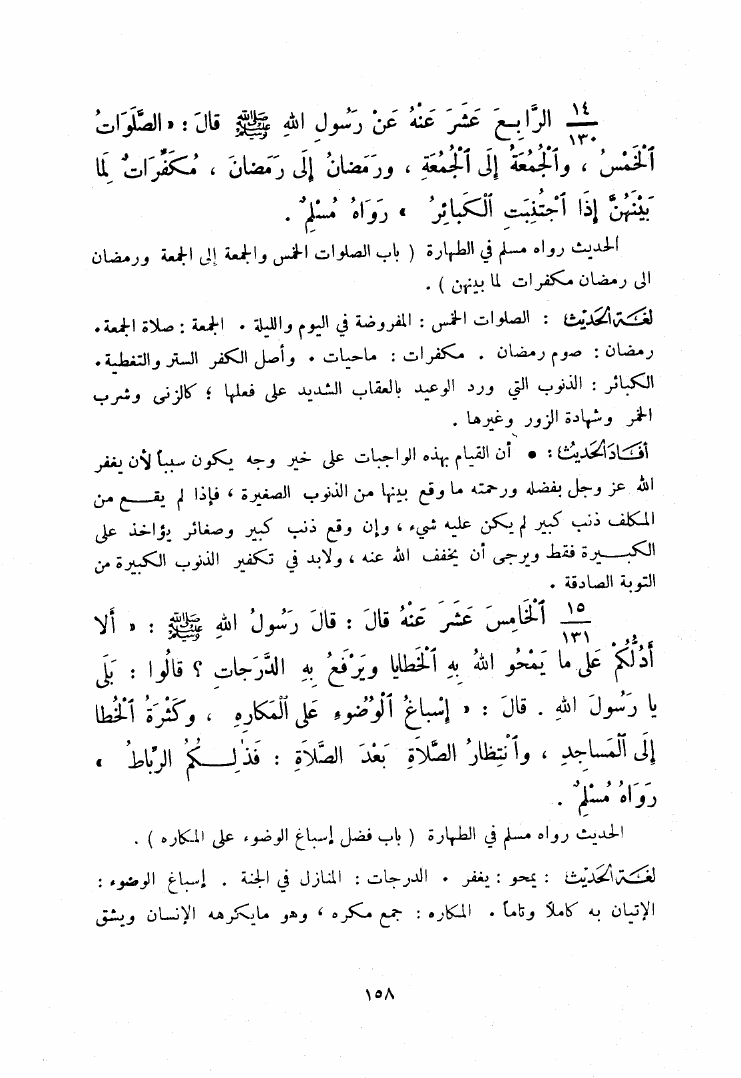 ١٤
١٣٠
الرَّابِعَ عَشَرَ عَنْهُ عَنْ رَسُولِ اللهِ ﷺ قالَ : « الصَّلَوَاتُ
ٱلْخَمْسُ ، وٱلْجُمُعَةُ إِلَى ٱلْجُمُعَةِ ، ورَمَضانُ إِلَى رَمَضانَ ، مُكَفِّرَاتٌ لِمَا
بَيْنَهُنَّ إِذَا ٱجْتُنِبَتِ ٱلْكَبائِرُ » رَوَاهُ مُسْلِمٌ .
الحديث رواه مسلم في الطهارة ( باب الصلوات الخمس والجمعة إلى الجمعة ورمضان
الى رمضان مكفرات لما بينهن ) .
لغَـة الحَديث : الصلوات الخمس : المفروضة في اليوم والليلة . الجمعة : صلاة الجمعة .
رمضان : صوم رمضان . مكفرات : ماحيات . وأصل الكفر الستر والتغطية .
الكبائر : الذنوب التي ورد الوعيد بالعقاب الشديد على فعلها ؛ كالزنى وشرب
الخمر وشهادة الزور وغيرها .
أفـَادَ الحَديث : • أن القيام بهذه الواجبات على خير وجه يكون سبباً لأن يغفر
الله عز وجل بفضله ورحمته ما وقع بينها من الذنوب الصغيرة ، فإذا لم يقـــع من
المكلف ذنب كبير لم يكن عليه شيء ، وإن وقع ذنب كبير وصغائر يؤاخذ على
الكبـــيرة فقط ويرجى أن يخفف الله عنه ، ولابد في تكفير الذنوب الكبيرة من
التوبة الصادقة .
١٥
١٣١
ٱلْخَامِسَ عَشَرَ عَنْهُ قالَ : قالَ رَسُولُ اللهِ ﷺ : « أَلا
أَدُلُّكُمْ عَلَى ما يَمْحُو اللهُ بِهِ ٱلْخَطايا ويَرْفَعُ بِهِ الدَّرَجاتِ ؟ قالُوا : بَلَى
يا رَسُولَ اللهِ . قالَ : « إِسْباغُ ٱلْوُضُوءِ عَلَى ٱلْمَكارِهِ ، وكَثْرَةُ ٱلْخُطا
إِلَى ٱلْمَساجِدِ ، وٱنْتِظارُ الصَّلاَةِ بَعْدَ الصَّلاَةِ : فَذٰلِـــكُمُ الرِّباطُ »
رَوَاهُ مُسْلِمٌ .
الحديث رواه مسلم في الطهارة ( باب فضل إسباغ الوضوء على المكاره ) .
لغَـة الحَديث : يمحو : يغفر . الدرجات : المنازل في الجنة . إسباغ الوضوء :
الإتيان به كاملاً وتاماً . المكاره : جمع مكره ، وهو مايكرهه الإنسان ويشق
١٥٨